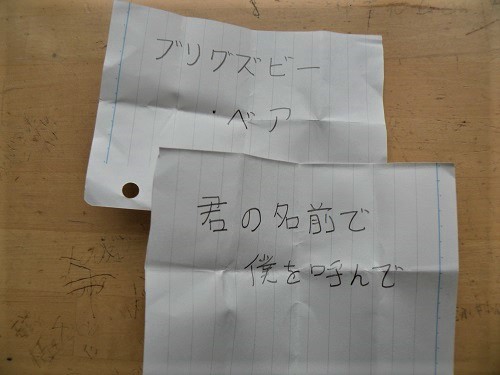 ブリグズビー
・ベア
君の名前で
僕を呼んで